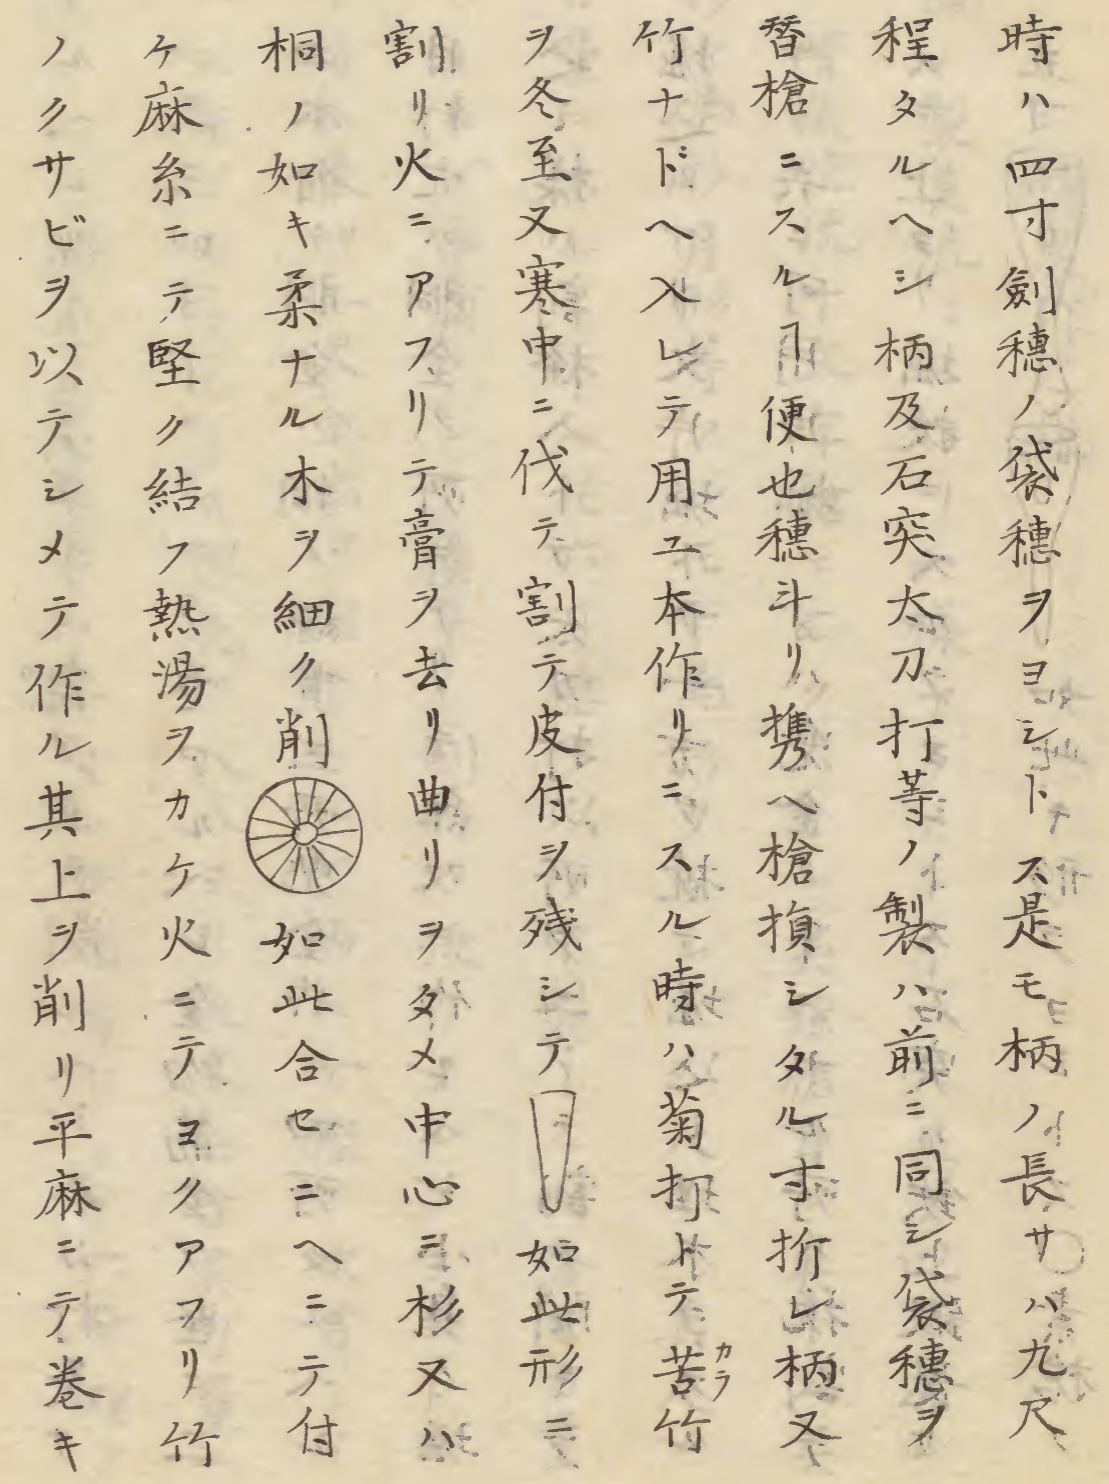 時ハ四寸劍穗ノ袋穗ヲヨシトス是モ柄ノ長サハ九尺
程タルヘシ柄及石突太刀打等ノ製ハ前ニ同シ袋穗ヲ
替槍ニスルヿ便也穗斗リ携ヘ槍損シタル寸折レ柄又
竹ナドヘ入レテ用ユ本作リニスル時ハ菊打トテ苦竹
カラ
ヲ冬至又寒中ニ伐テ割テ皮付ヲ残シテ如此形ニ
割リ火ニアフリテ膏ヲ去リ曲リヲタメ中心ニ杉又ハ
桐ノ如キ柔ナル木ヲ細ク削如此合セニヘニテ付
ケ麻糸ニテ堅ク結フ熱湯ヲカケ火ニテヨクアフリ竹
ノクサビヲ以テシメテ作ル其上ヲ削リ平麻ニテ巻キ